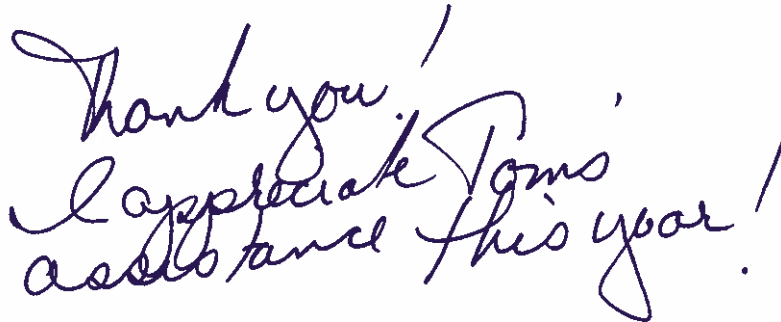 Thank you!
I appreciate Tom's
assistance this year!